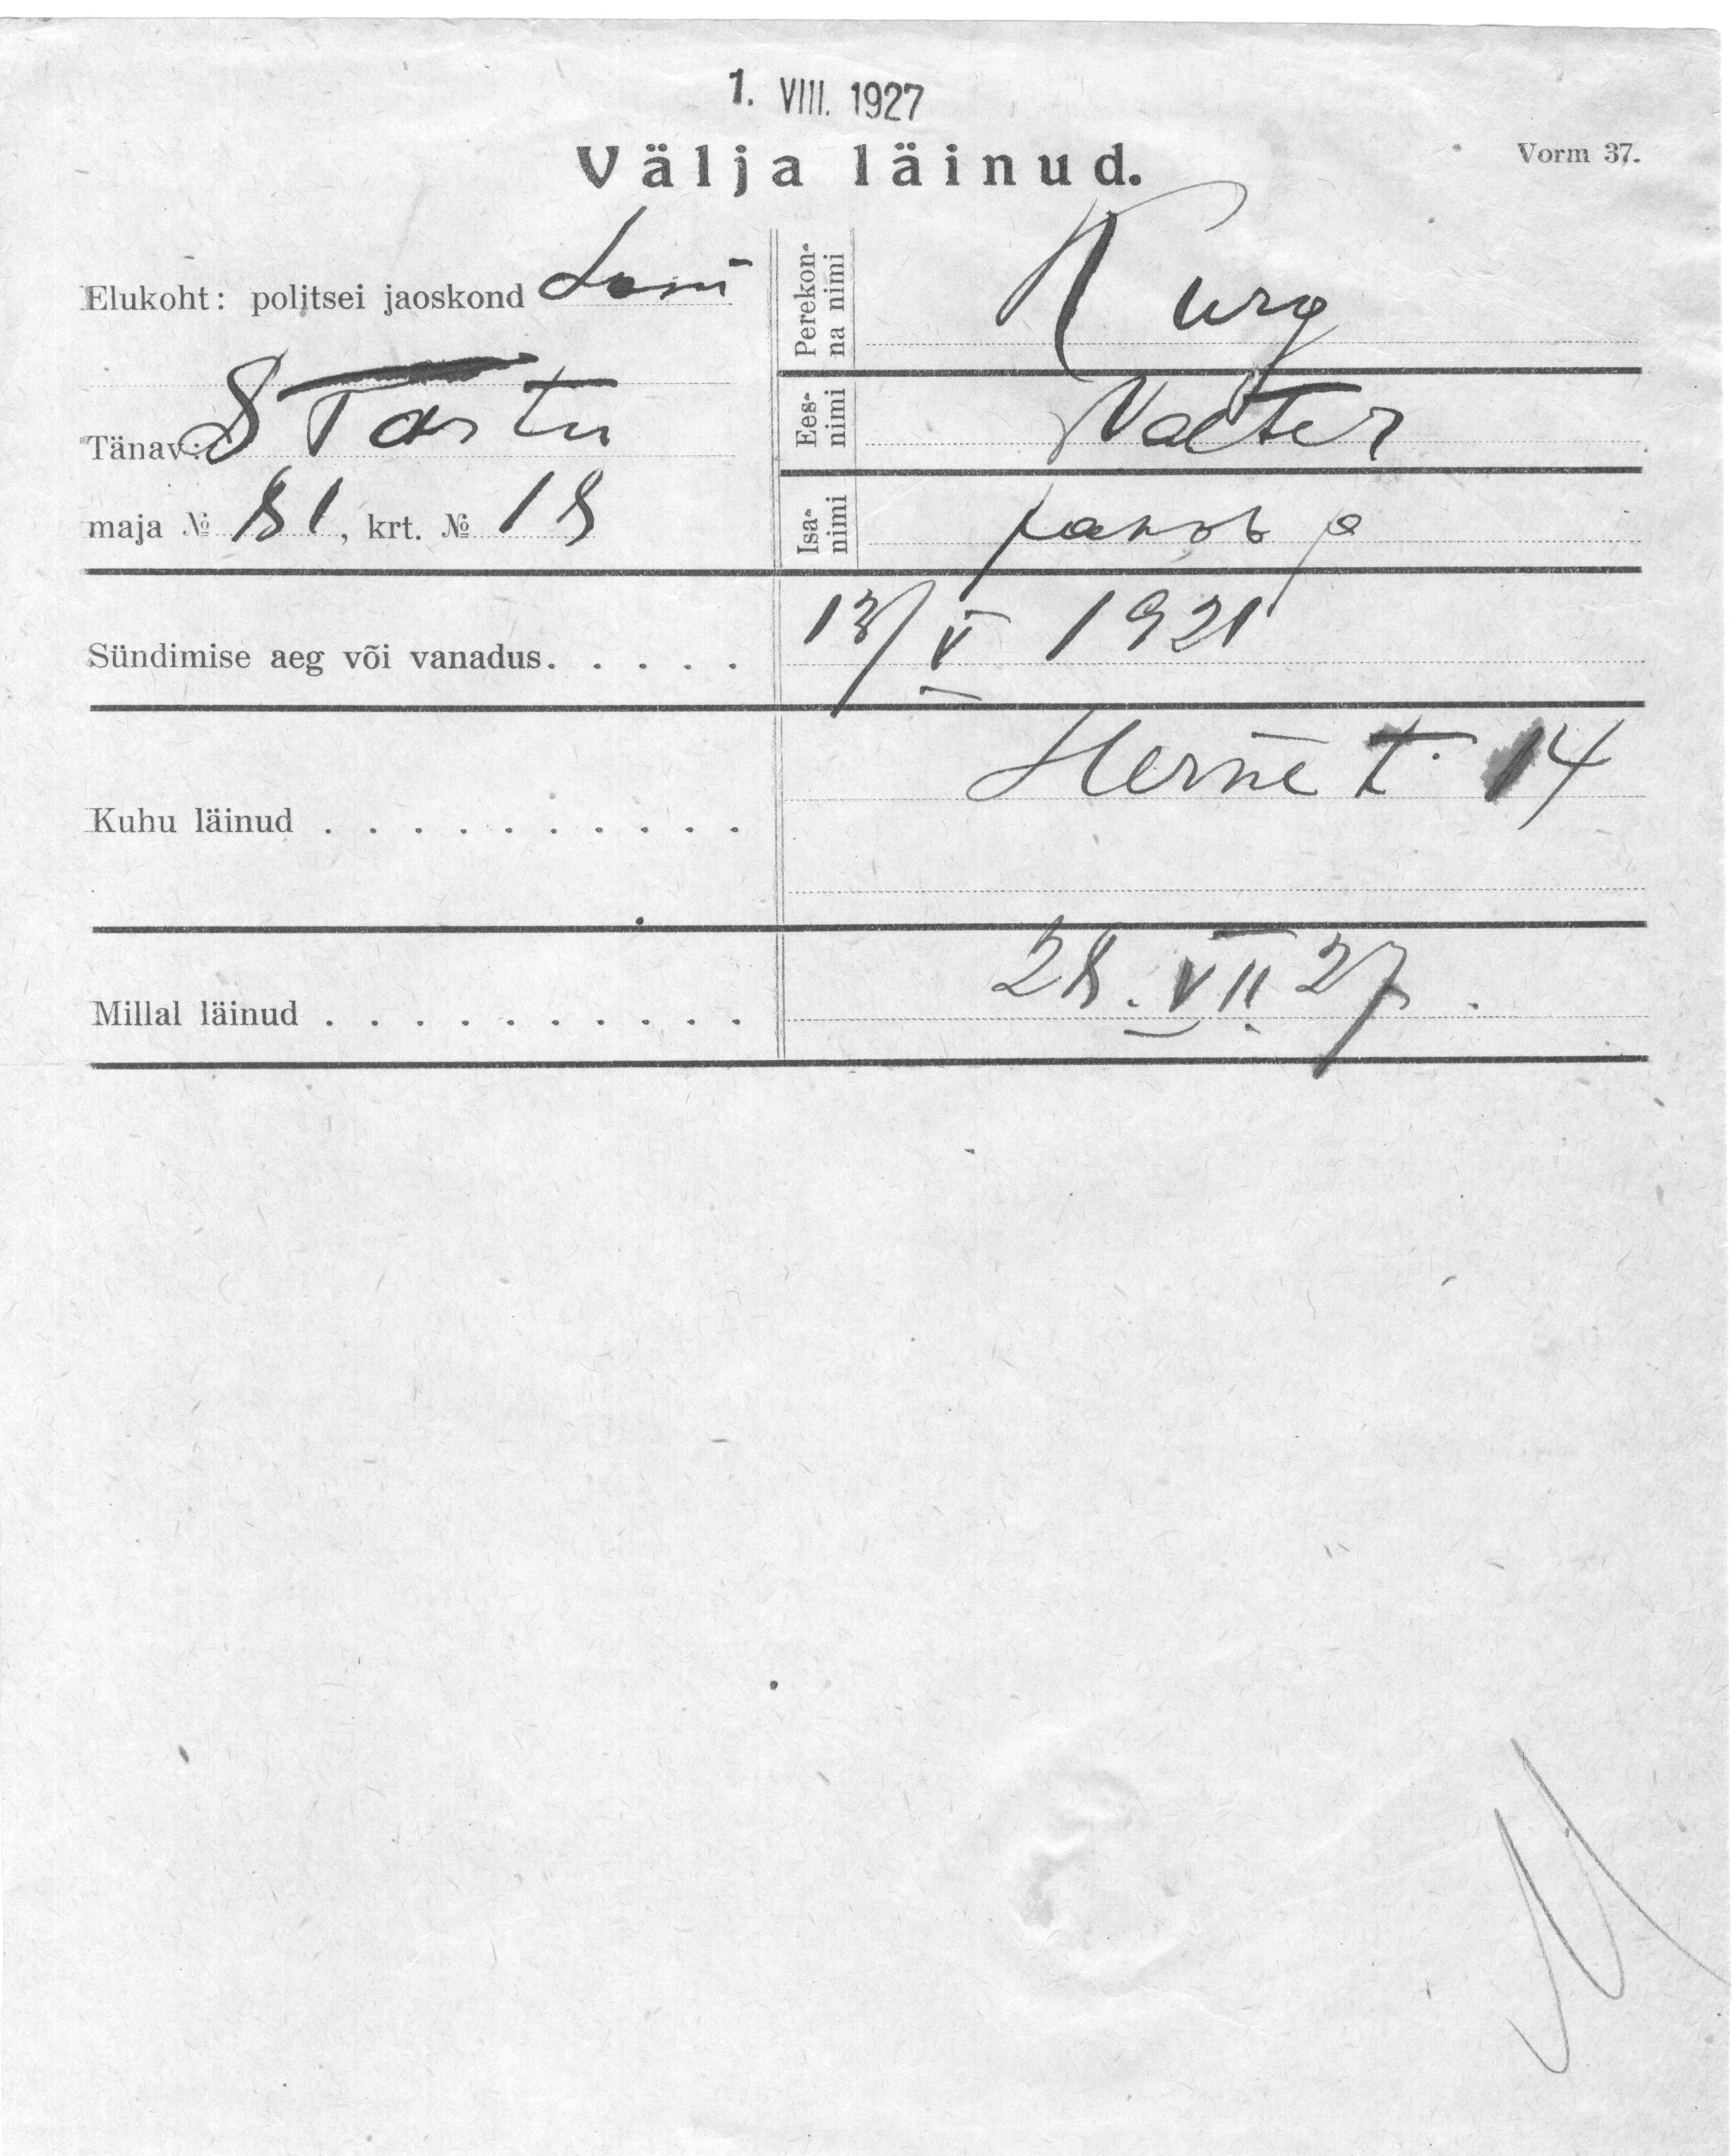 1. VIII. 1927
Välja läinud.
Vorm 37.
Elukoht: politsei jaoskond
S Tartu
Tänav:
maja № 81, krt. № 18
Perekon-
na nimi
Kurg
Ees-
nimi
Valter
Isa-
nimi
Jakob p
Sündimise aeg või vanadus. . . . . 13/V 1921
Kuhu läinud . . . . . . . . . . Herne t. 14
Millal läinud . . . . . . . . . . 28. VII 27.